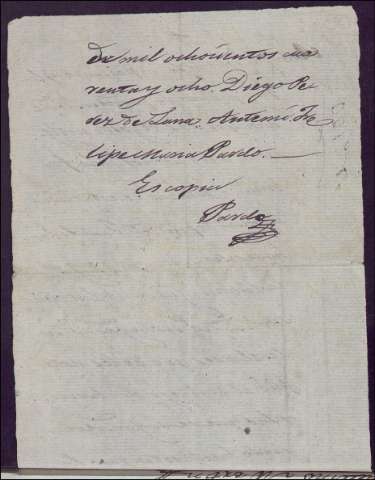 de mil ochocientos cua
renta y ocho. Diego Pe
dez de Luna. Antemi. Fe
lipe Maria Pardo. —
Es copia
Pardo